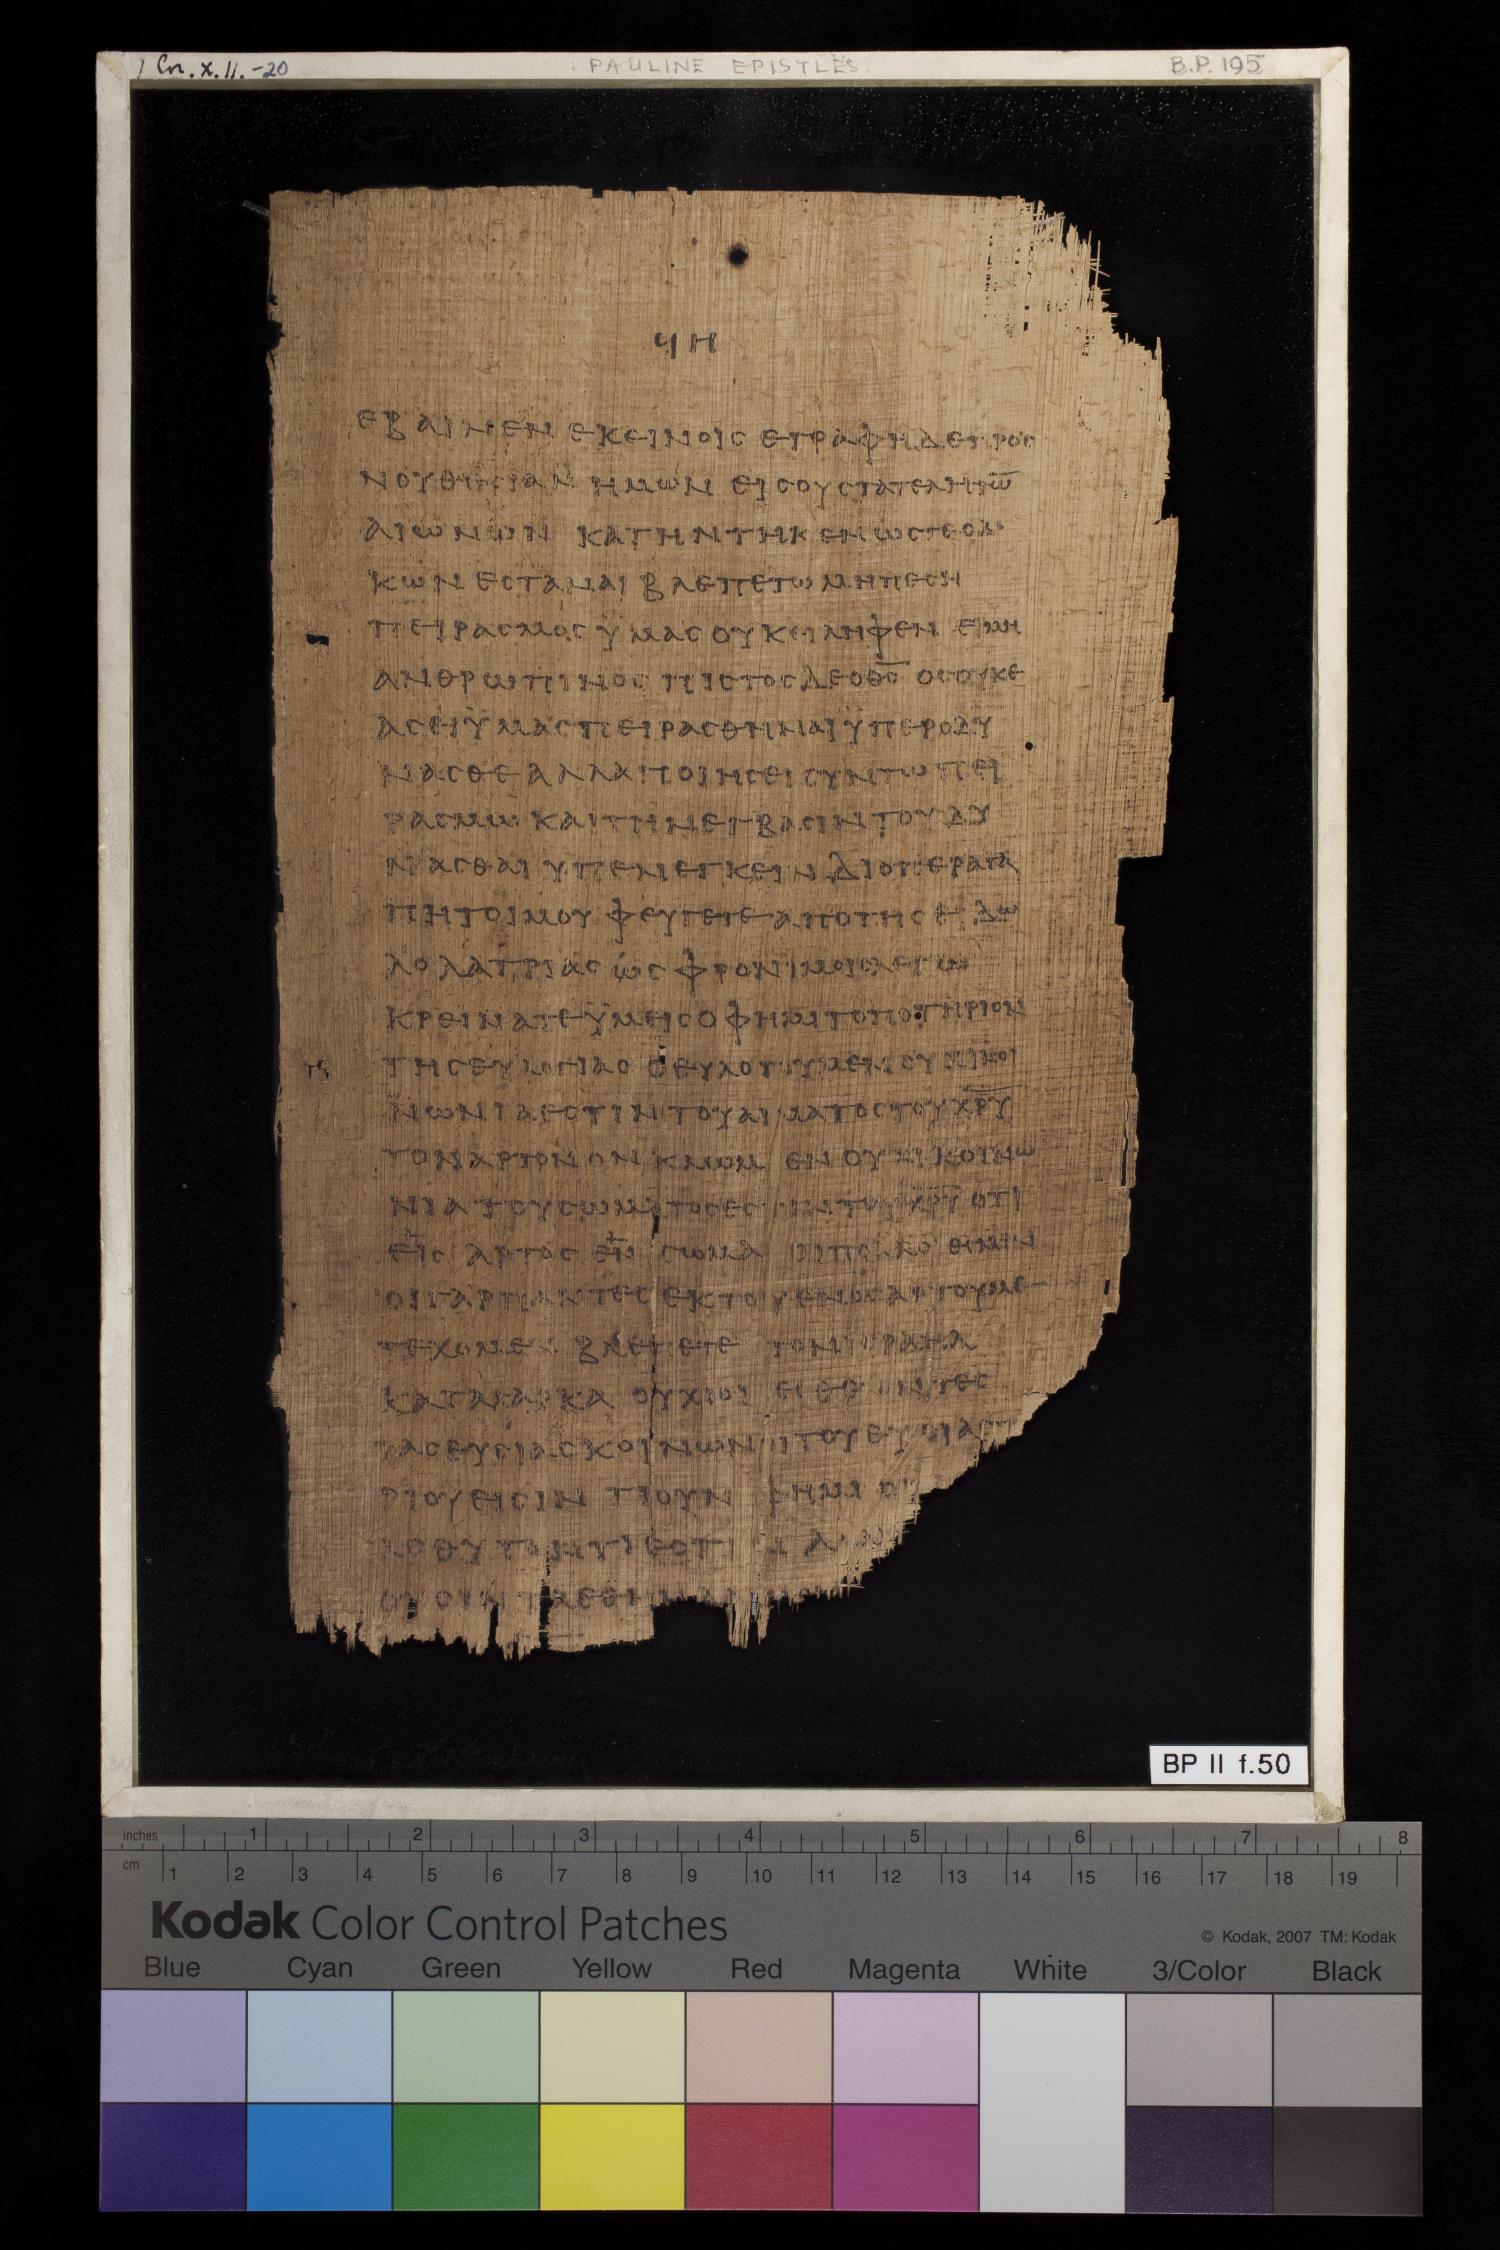 1 Cor. x. 11. -20
PAULINE EPISTLES.
B.P. 195
ϥη
εβαινεν εκεινοις εγραφη δε προς
νουθεσιαν ημων εις ους τα τελη τω̅
αιωνων κατηντηκεν ωστε ο δο
κων εσταναι βλεπετω μη πεση
πειρασμος ϋμας ουκ ειληφεν ει μη
ανθρωπινος πιστος δε ο θ̅ς̅ ος ουκ ε
ασει ϋμας πειρασθηναι ϋπερ ο δυ
νασθε αλλα ποιησει συν τω πει
ρασμω και την εγβασιν του δυ
νασθαι υπενεγκειν διοπερ αγα
πητοι μου φευγετε απο της ειδω
λολατριας ως φρονιμοις λεγω
κρεινατε ϋμεις ο φημι το ποτηριον
της ευλογιας ο ευλογουμεν ουχι κοι
νωνια εστιν του αιματος του χ̅ρ̅υ̅
τον αρτον ον κλωμεν ουχι κοινω
νια του σωματος εστιν του χ̅ρ̅υ̅ οτι
εις αρτος εν σωμα οι πολλοι εσμεν
οι γαρ παντες εκ του ενος αρτου με
τεχομεν βλεπετε τον ισραηλ
κατα σαρκα ουχι οι εσθιοντες
τας θυσιας κοινωνοι του θυσιαστη
ριου εισιν τι ουν φημι οτ
λοθυτον τι εστιν
ουσιν τα εθν
BP II f.50
inches 1 2 3 4 5 6 7 8
cm 1 2 3 4 5 6 7 8 9 10 11 12 13 14 15 16 17 18 19
Kodak Color Control Patches
© Kodak, 2007 TM: Kodak
Blue Cyan Green Yellow Red Magenta White 3/Color Black